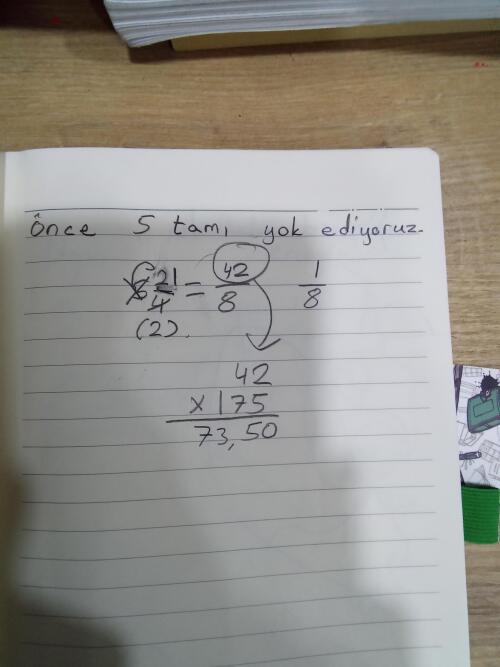 Önce 5 tamı yok ediyoruz.
5 21/4 = 42/8 1/8
(2).
42
x175
73,50